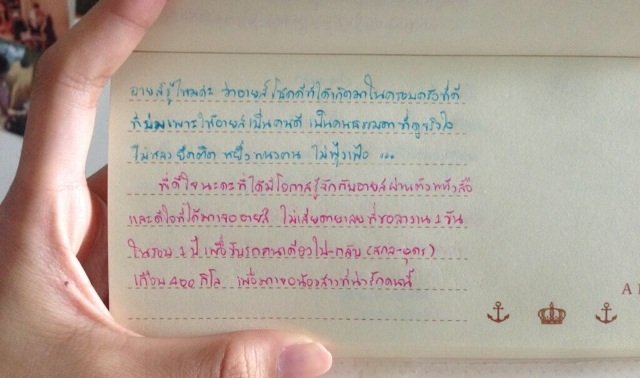 อายส์รู้ไหมคะ ว่าอายส์โชคดีที่ได้เกิดมาในครอบครัวที่ดี
ที่บ่มเพาะให้อายส์เป็นคนดี เป็นคนธรรมดา ที่ดูจริงใจ
ไม่หลง ยึดติด หยิ่งทนงตน ไม่ฟุ้งเฟ้อ ...
พี่ดีใจนะคะที่ได้มีโอกาสรู้จักกับอายส์ผ่านตัวหนังสือ
และดีใจที่ได้มาเจออายส์ ไม่เสียดายเลยที่ขอลางาน 1 วัน
ในรอบ 1 ปี เพื่อขับรถคนเดียวไป-กลับ (สกล-อุดร)
เกือบ 400 กิโล เพื่อมาเจอน้องสาวที่น่ารักคนนี้
A